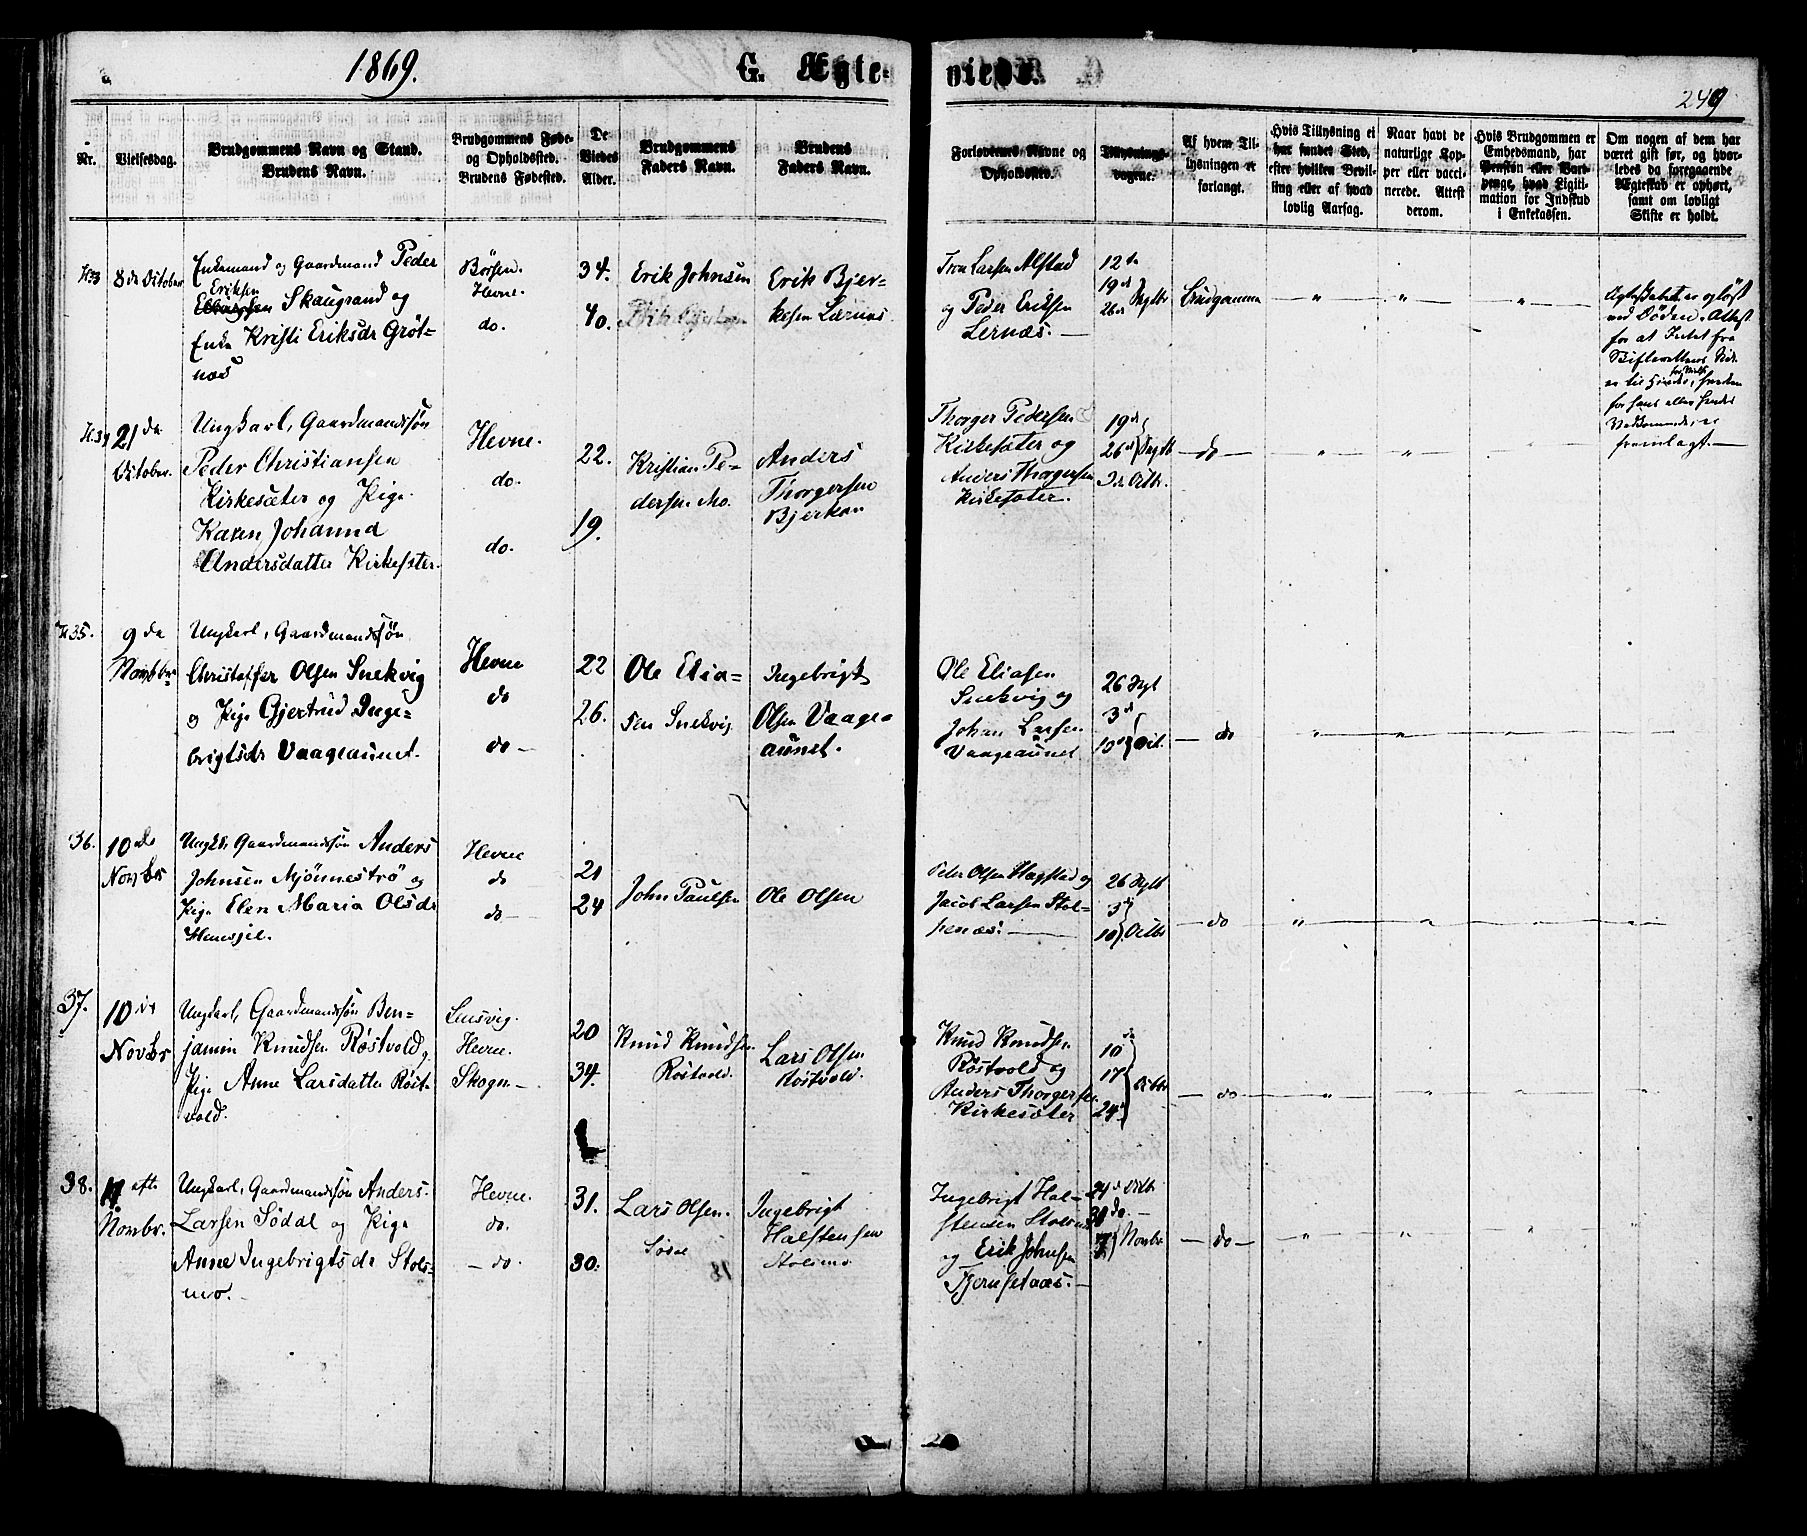 1869.
G. Ægte-
viede.
249
Nr.
Vielsesdag.
Brudgommens Navn og Stand.
Brudens Navn.
Brudgommens Føde-
og Opholdssted.
Brudens Fødested.
De
Viedes
Alder.
Brudgommens
Faders Navn.
Brudens
Faders Navn.
Forlovernes Navne og
Opholdssted.
Tillysnings-
dagene.
Af hvem Til-
lysningen er
forlangt.
Hvis Tillysning ei
har fundet Sted,
efter hvilken Bevil-
ling eller af hvad
lovlig Aarsag.
Naar havt de
naturlige Kop-
per eller vacci-
nerede. Attest
derom.
Hvis Brudgommen er
Embedsmand, har
Pension eller Vart-
penge, hvad Ligiti-
mation for Indskud
i Enkekassen.
Om nogen af dem har
været gift før, og hvor-
ledes da foregaaende
Ægteskab er ophørt,
samt om lovligt
Skifte er holdt.
33
8de October
Enkemand og Gaardmand Peder
Eriksen
Skaugrand og
Enke Kristi Eriksdr Grøt-
næs
Børsen.
Hevne.
do.
34.
40.
Erik Johnsen
Erik Bjer-
kesen Lærnæs
Tron Larsen Alstad
og Peder Eriksen
Lernæs.
12te
19de
26de Septbr
Brudgommen
" " "
Ægteskabet er opløst
ved Døden. Attest
for at Intet fra
Skifterettens Side
er til Hinder,
fremlagt.
34
21de
October.
Ungkarl, Gaardmandssøn
Peder Christiansen
Kirkesæter og Pige
Karen Johanna
Andersdatter Kirkesæter.
Hevne.
do.
do.
22.
19.
Kristian Pe-
dersen Mo.
Anders
Thorgersen
Bjerkan
Thorger Pedersen
Kirkesæter og
Anders Thorgersen
Kirkesæter.
19de
26de Septb
3de Octbr.
do
" " "
35.
9de
Novembr
Ungkarl, Gaardmandssøn
Christoffer Olsen Snekvig
og Pige Gjertrud Inge-
brigtsdr Vaageaunet.
Hevne
do
do
22
26.
Ole Elia-
sen Snekvig
Ingebrigt
Olsen Vaage-
aunet.
Ole Eliasen
Snekvig og
Johan Larsen
Vaageaunet
26 Sept
3de
10de Oct.
do
" " "
36.
10de
Novbr
Ungk. Gaardmandssøn Anders
Johnsen Mjønnestrø og
Pige Elen Maria Olsdr
Hevne
do
do
21
24
John Paulsen
Ole Olsen
Peter Olsen Hagstad og
Jacob Larsen Stol-
senæs.
26 Septb
3de
10 Octbr
do
" " "
37.
10de
Novbr
Ungkarl, Gaardmandssøn Ben-
jamin Knudsen Røstvold og
Pige Anne Larsdatter Røst-
vold.
Hevne.
Skogn
20
34.
Knud Knudsen
Røstvold.
Lars Olsen
Røstvold.
Knud Knudsen
Røstvold og
Anders Thorgersen
Kirkesæter
10de
17
24de
Octbr
do
" " "
38.
11 efte
Novmbr.
Ungkarl, Gaardmandssøn Anders
Larsen Sødal og Pige
Anne Ingebrigtsdr Stols-
mo.
Hevne.
do.
do.
31.
30.
Lars Olsen.
Sødal
Ingebrigt
Halstensen
Stolsmo
Ingebrigt Hal-
stensen Stolsmo
og Erik Johnsen
24de Octbr
do.
7 Novbr
do
" " "